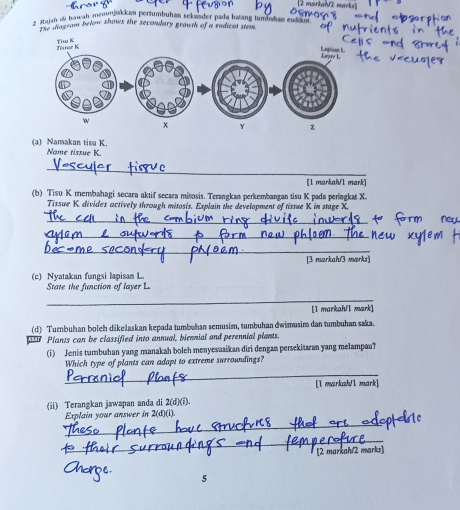 by
[2 markah/2 marks]
osmosis and absorption
of nutrients in the
cells and stored i
the vacuoles
2 Rajah di bawah menunjukkan pertumbuhan sekunder pada batang tumbuhan eudikot.
The diagram below shows the secondary growth of a eudicot stem.
Tisu K
Tissue K
Lapisan L
Layer L
W
X
Y
Z
(a) Namakan tisu K.
Name tissue K.
Vescular tissue
[1 markah/1 mark]
(b) Tisu K membahagi secara aktif secara mitosis. Terangkan perkembangan tisu K pada peringkat X.
Tissue K divides actively through mitosis. Explain the development of tissue K in stage X.
The cell in the cambium ring divite inwards to form new
xylem & outwords to form new phloem. The new xylem
become secondery phloem.
[3 markah/3 marks]
(c) Nyatakan fungsi lapisan L.
State the function of layer L.
[1 markah/1 mark]
(d) Tumbuhan boleh dikelaskan kepada tumbuhan semusim, tumbuhan dwimusim dan tumbuhan saka.
Plants can be classified into annual, biennial and perennial plants.
(i) Jenis tumbuhan yang manakah boleh menyesuaikan diri dengan persekitaran yang melampau?
Which type of plants can adapt to extreme surroundings?
Perranial plants
[1 markah/1 mark]
(ii) Terangkan jawapan anda di 2(d)(i).
Explain your answer in 2(d)(i).
These plants have structures that are adaptable
to their surroundings and temperature
[2 markah/2 marks]
Change.
5